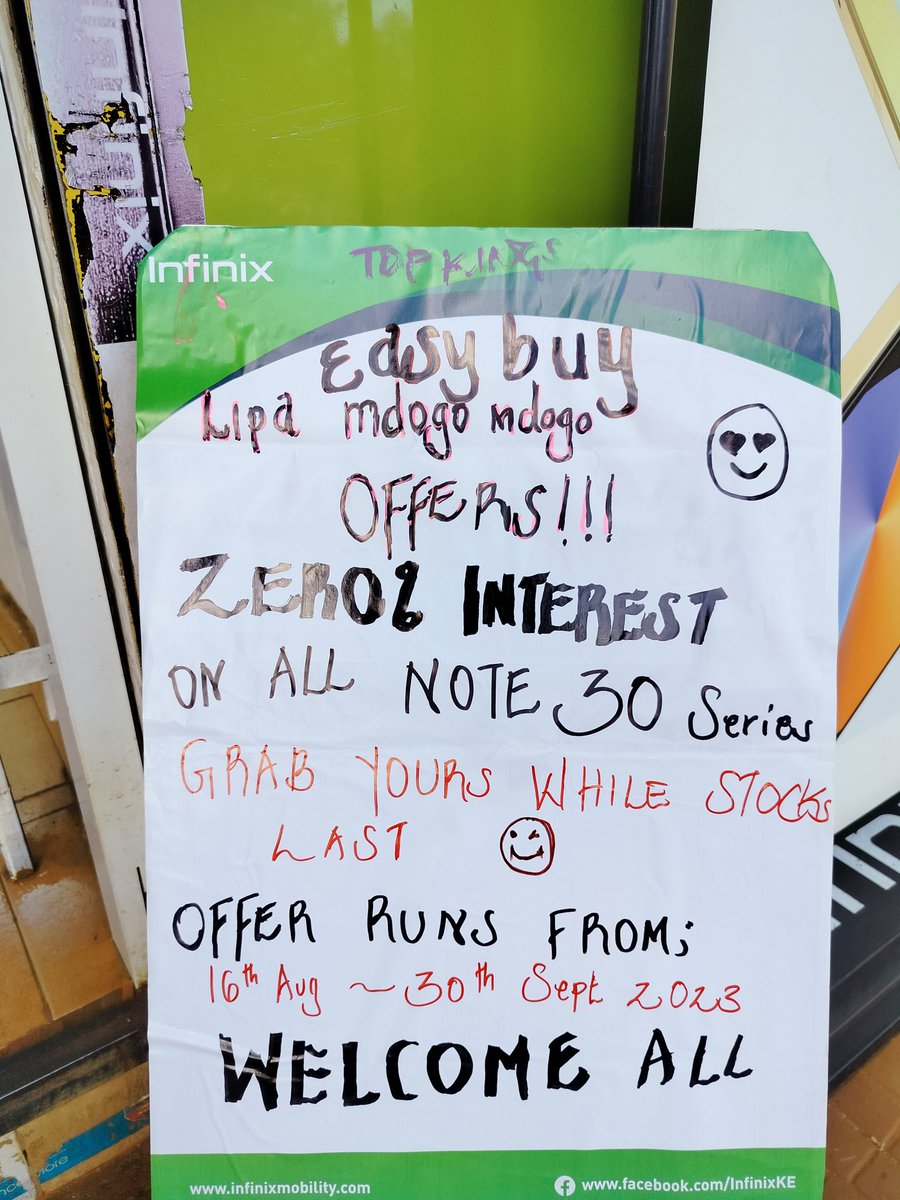 Infinix
TOP KINGS
Easy buy
Lipa mdogo mdogo
OFFERS!!!
ZERO% INTEREST
ON ALL NOTE 30 Series
GRAB YOURS WHILE STOCKs
LAST
OFFER RUNS FROM;
16th Aug ~ 30th Sept 2023
WELCOME ALL
www.infinixmobility.com
www.facebook.com/InfinixKE